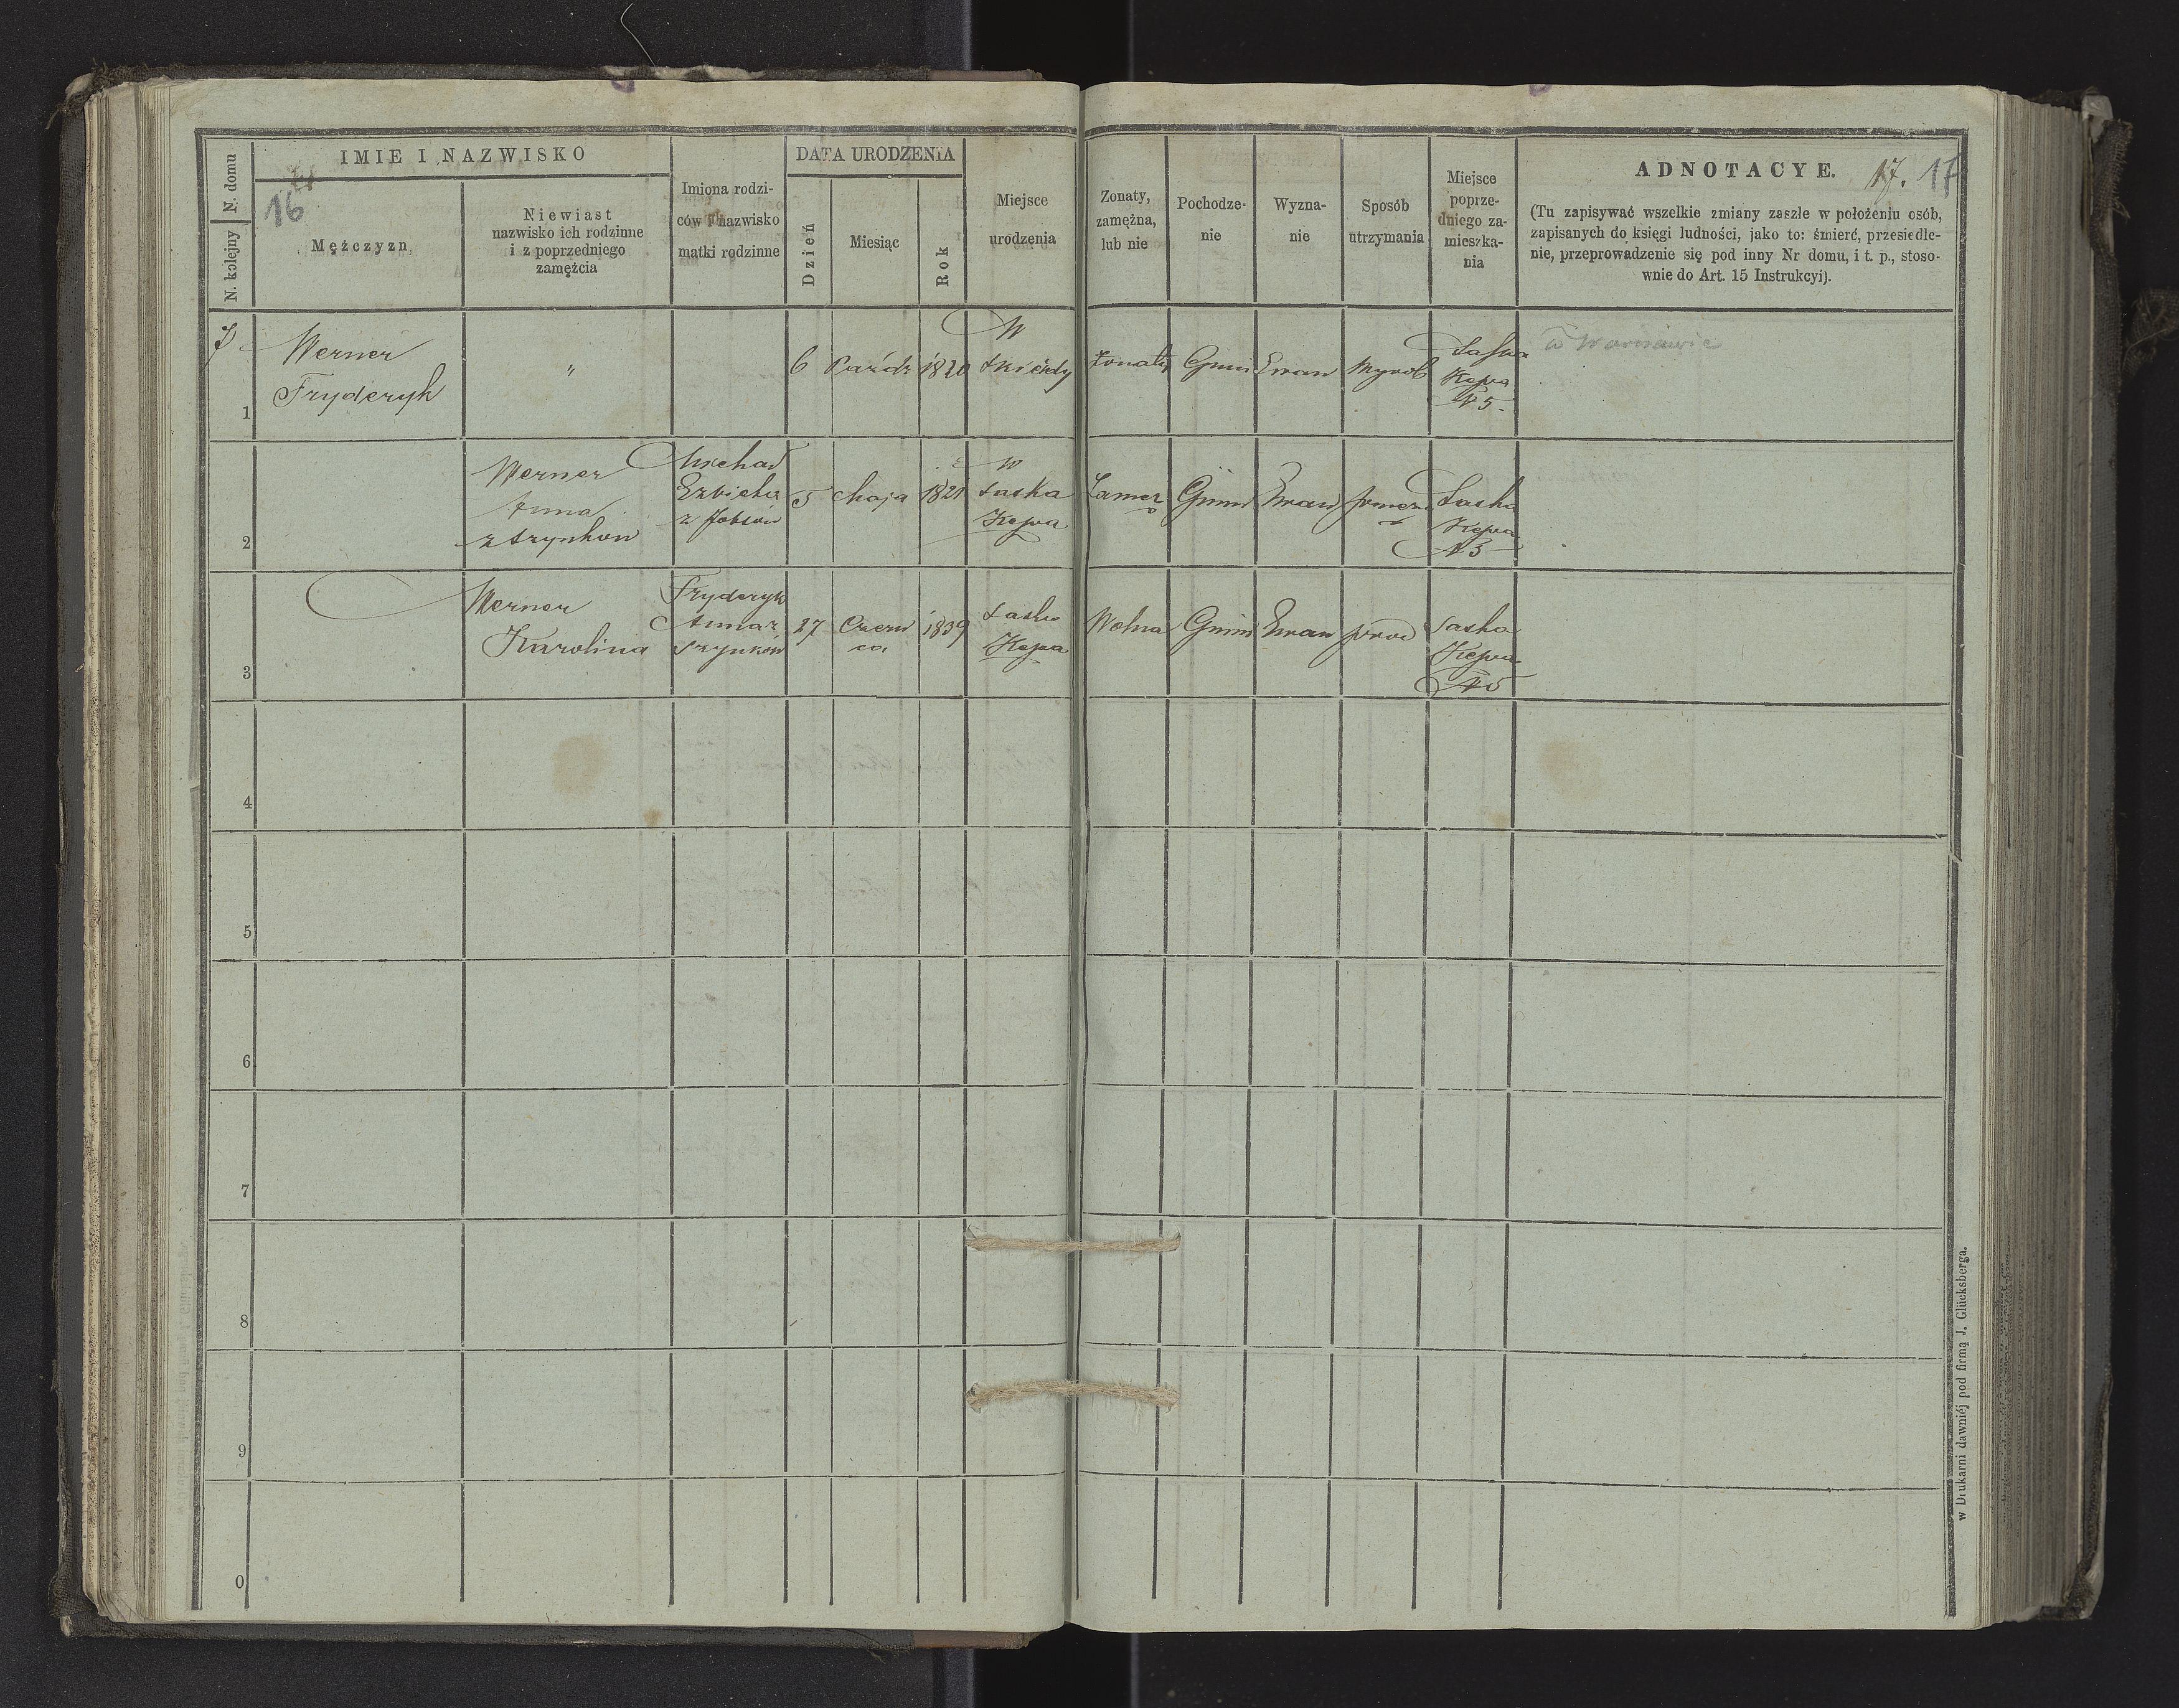 N. domu
N. kolejny
IMIE I NAZWISKO
16
Mężczyzn
Niewiast
nazwisko ich rodzinne
i z poprzedniego
zamężcia
Imiona rodzi-
ców i nazwisko
matki rodzinne
DATA URODZENIA
Dzień
Miesiąc
Rok
Miejsce
urodzenia
Zonaty,
zamężna,
lub nie
Pochodze-
nie
Wyzna-
nie
Sposób
utrzymania
Miejsce
poprze-
dniego za-
mieszka-
nia
ADNOTACYE.
17. 17
(Tu zapisywać wszelkie zmiany zaszłe w położeniu osób,
zapisanych do księgi ludności, jako to: śmierć, przesiedle-
nie, przeprowadzenie się pod inny Nr domu, i t. p., stoso-
wnie do Art. 15 Instrukcyi).
1
Werner
Fryderyk
"
6
Paźdz
1820
W
Skierdy
Żonaty
Gmin
Ewan
Wyrob
Saska
Kępa
N 5.
w Warszawie
2
Werner
Anna
z Szynkow
Michał
Elzbieta
5
Maja
1821
W
Saska
Kępa
Zamęz
Gmin
Ewan
Saska
Kępa
3
Werner
Karolina
Fryderyk
Anna z
Szynkow
27
Czerw
ca
1839
Saska
Kępa
Wolna
Gmin
Ewan
Saska
Kępa
N 5
4
5
6
7
8
9
0
w Drukarni dawniéj pod firmą J. Glücksberga.